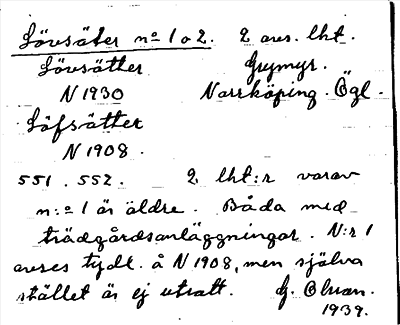 Lövsäter nº 1 o 2. 2 avs. lht.
Lövsätter Grymyr.
N 1930 Norrköping. Ögl.
Löfsätter
N 1908.
551. 552. 2 lht:r varav
n:o 1 är äldre. Båda med
trädgårdsanläggningar. N:r 1
avses tydl. å N 1908, men själva
stället är ej utsatt. G. Olsson.
1939.